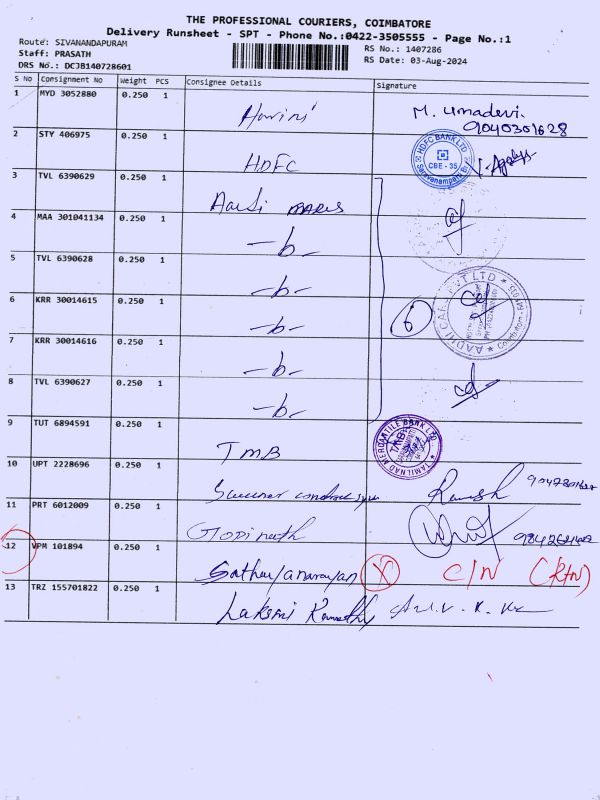 THE PROFESSIONAL COURIERS, COIMBATORE
Delivery Runsheet - SPT - Phone No.:0422-3505555 - Page No.:1
Route: SIVANANDAPURAM
Staff: PRASATH
DRS No.: DCJB140728601
RS No.: 1407286
RS Date: 03-Aug-2024
S No Consignment No Weight PCS Consignee Details Signature
1 MYD 3052880 0.250 1 M. Umadevi.
9040301628
2 STY 406975 0.250 1 HDFC
HDFC BANK LTD
CBE - 35
Saravanampatti Br
3 TVL 6390629 0.250 1
4 MAA 301041134 0.250 1 -b-
5 TVL 6390628 0.250 1 -b-
6 KRR 30014615 0.250 1 -b- 6
7 KRR 30014616 0.250 1 -b-
8 TVL 6390627 0.250 1 -b-
9 TUT 6894591 0.250 1 TMB
TAMILNAD MERCANTILE BANK LTD
TMB
10 UPT 2228696 0.250 1 Ramesh
11 PRT 6012009 0.250 1 Gopinath
12 VPM 101894 0.250 1 Sathayanarayan X C/N (RTN)
13 TRZ 155701822 0.250 1 Laksmi